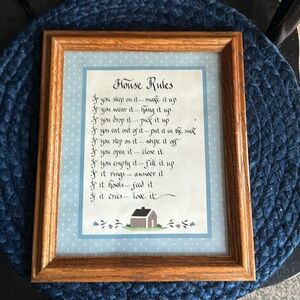 House Rules
If you sleep on it... make it up
If you wear it... hang it up
If you drop it... pick it up
If you eat out of it... put it in the sink
If you step on it... wipe it off
If you open it... close it
If you empty it... fill it up
If it rings... answer it
If it howls... feed it
If it cries... love it